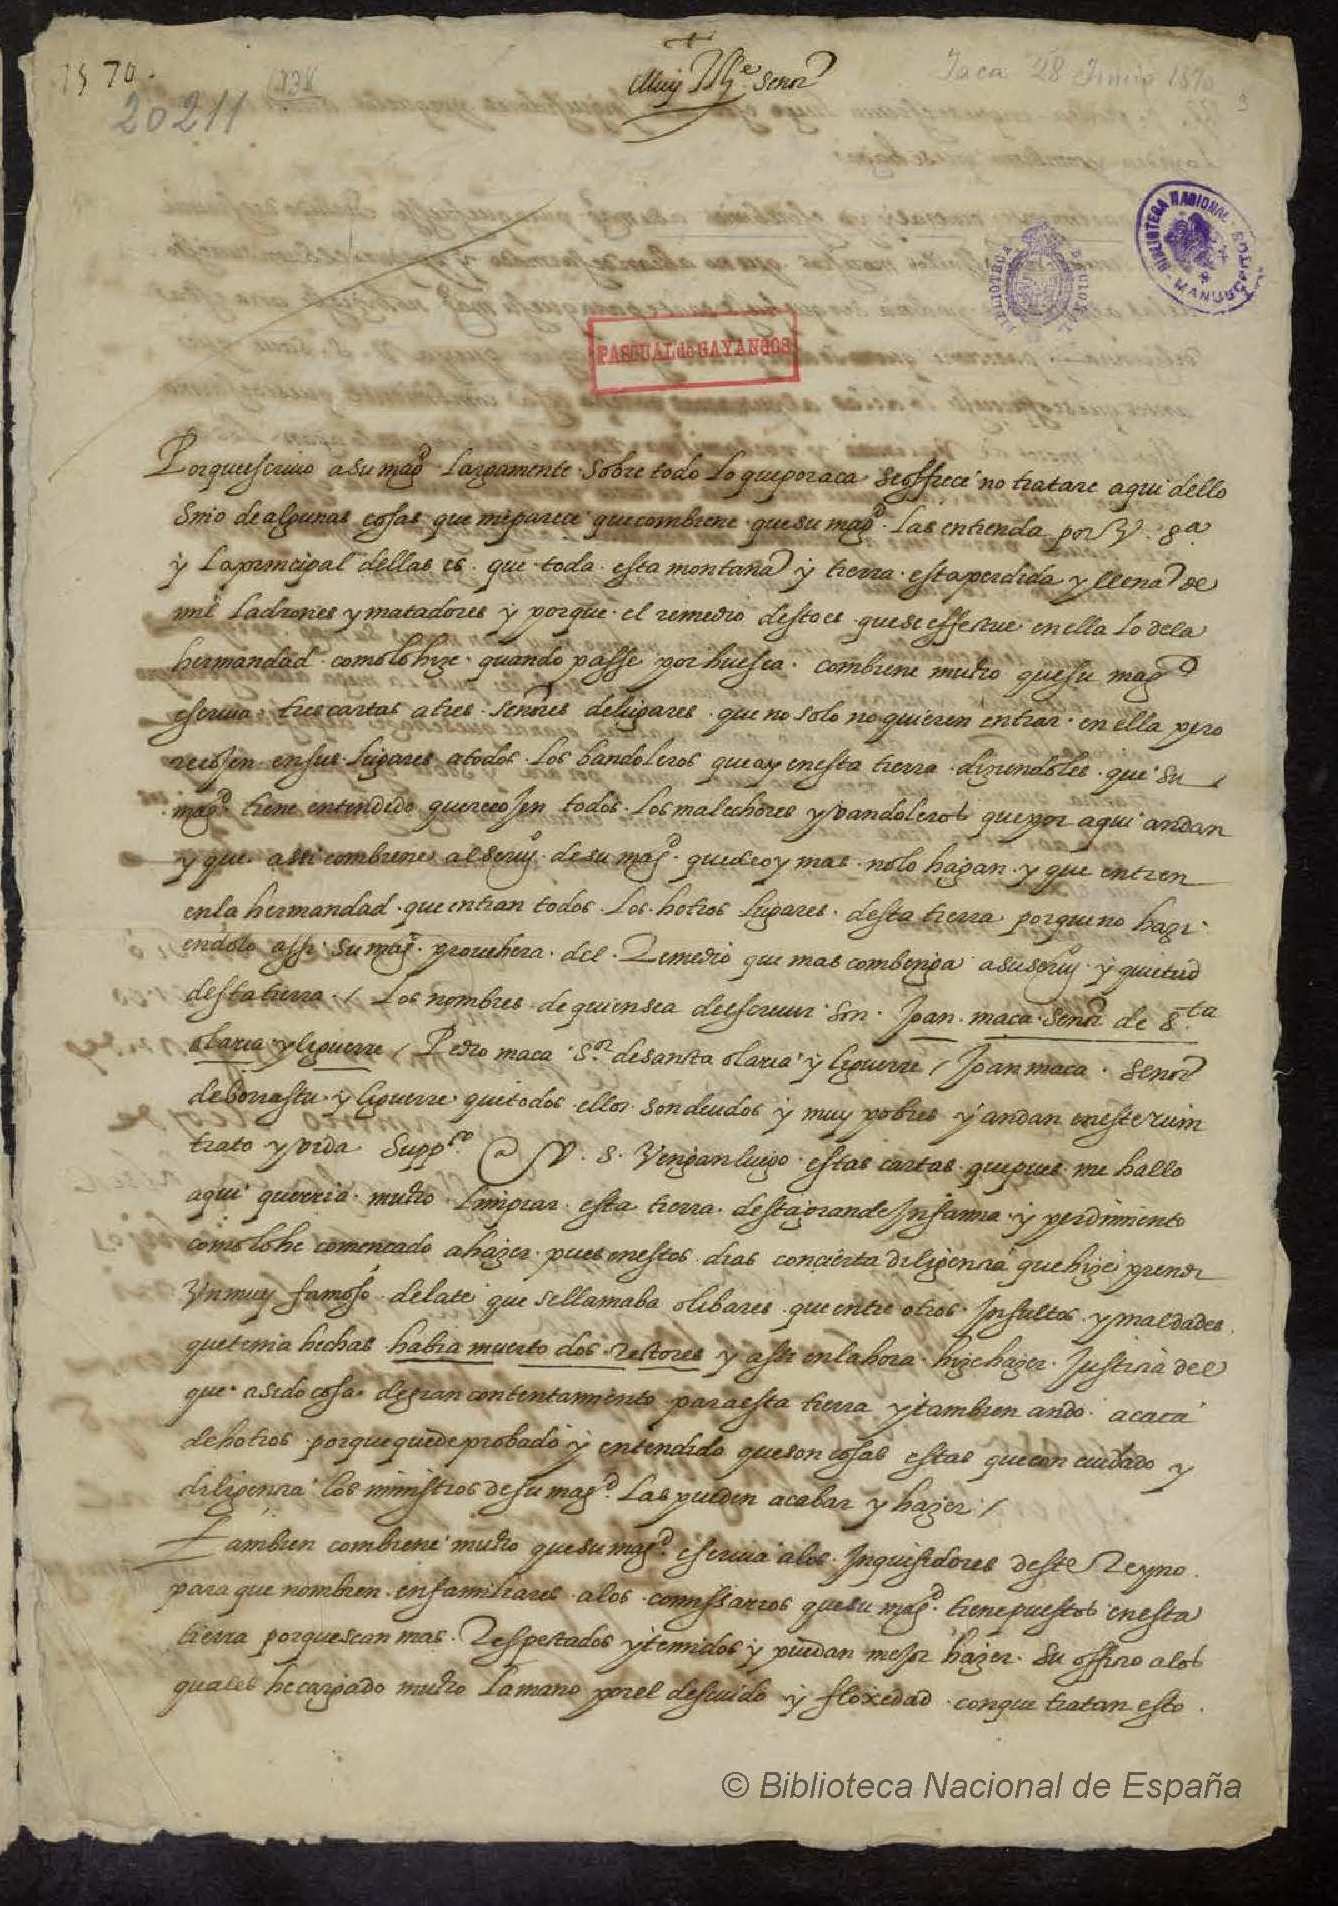 1570.
20211
Jaca 28 Junio 1570
3
+
Muy Ill.e Señor
BIBLIOTECA NACIONAL
BIBLIOTECA NACIONAL
MANUSCRITOS
PASCUAL de GAYANGOS
Porque escrivo a su mag.d largamente sobre todo lo que por aca se offrece no tratare aqui dello
sino de algunas cosas que me parece que combiene que su mag.d las entienda por V. S.a
y la principal dellas es que toda esta montaña y tierra esta perdida y llena de
mil ladrones y matadores y porque el remedio desto es que se effectue en ella lo de la
hermandad como lo hize quando passe por huesca combiene mucho que su mag.d
escriva tres cartas a tres señores de lugares que no solo no quieren entrar en ella pero
recojen en sus lugares a todos los bandoleros que ay en esta tierra diziendoles que su
mag.d tiene entendido que recojen todos los malechores y vandoleros que por aqui andan
y que assi combiene al serui.o de su mag.d que de oy mas no lo hagan y que entren
en la hermandad que entran todos los hotros lugares desta tierra porque no hazi
endolo assi su mag.d probehera del Remedio que mas combenga a su serui.o y quietud
desta tierra / los nombres de quien se a de escriuir son Joan maca señor de S.ta
olaria y liguerre / Pedro maca s.or de santa olaria y liguerre / Joan maca señor
de borrastre y liguerre que todos ellos son deudos y muy pobres y andan en este ruin
trato y vida supp.co a V. S. Vengan luego estas cartas que pues me hallo
aqui querria mucho limpiar esta tierra desta grande Infamia y perdimiento
como lo he comencado a hazer pues en estos dias con cierta diligencia que hize prendi
Un muy famoso delate que se llamaba olibares que entre otros Insultos y maldades
que tenia hechas habia muerto dos rectores y assi en la hora hize hazer Justicia del
que a sido cosa de gran contentamiento para esta tierra y tambien ando a caca
de hotros porque quede probado y entendido que son cosas estas que con cuidado y
diligencia los ministros de su mag.d las pueden acabar y hazer /
Tambien combiene mucho que su mag.d escriua a los Inquisidores deste Reyno
para que nombren en familiares a los comissarios que su mag.d tiene puestos en esta
tierra porque sean mas Respectados y temidos y puedan mejor hazer su officio a los
quales he cargado mucho la mano por el descuido y floxedad con que tratan esto
© Biblioteca Nacional de España